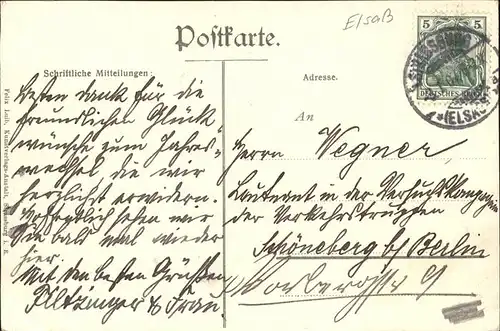 Elsaß
Postkarte.
5 5
STRASSBURG
DEUTSCHES REICH
(ELS.)
Schriftliche Mitteilungen:
Adresse.
An
Besten Dank für die
freundlichen Glück
wünsche zum Jahres
wechsel die wir
herzlichst erwidern.
Hoffentlich sehen wir
Sie bald mal wieder
hier.
Mit den besten Grüßen
Filtzinger & Frau.
Herrn Wegner,
Leutnant in der Versuchskompagnie
der Verkehrstruppen
Schöneberg b/ Berlin
9
Felix Luib, Kunstverlags-Anstalt, Strassburg i. E.